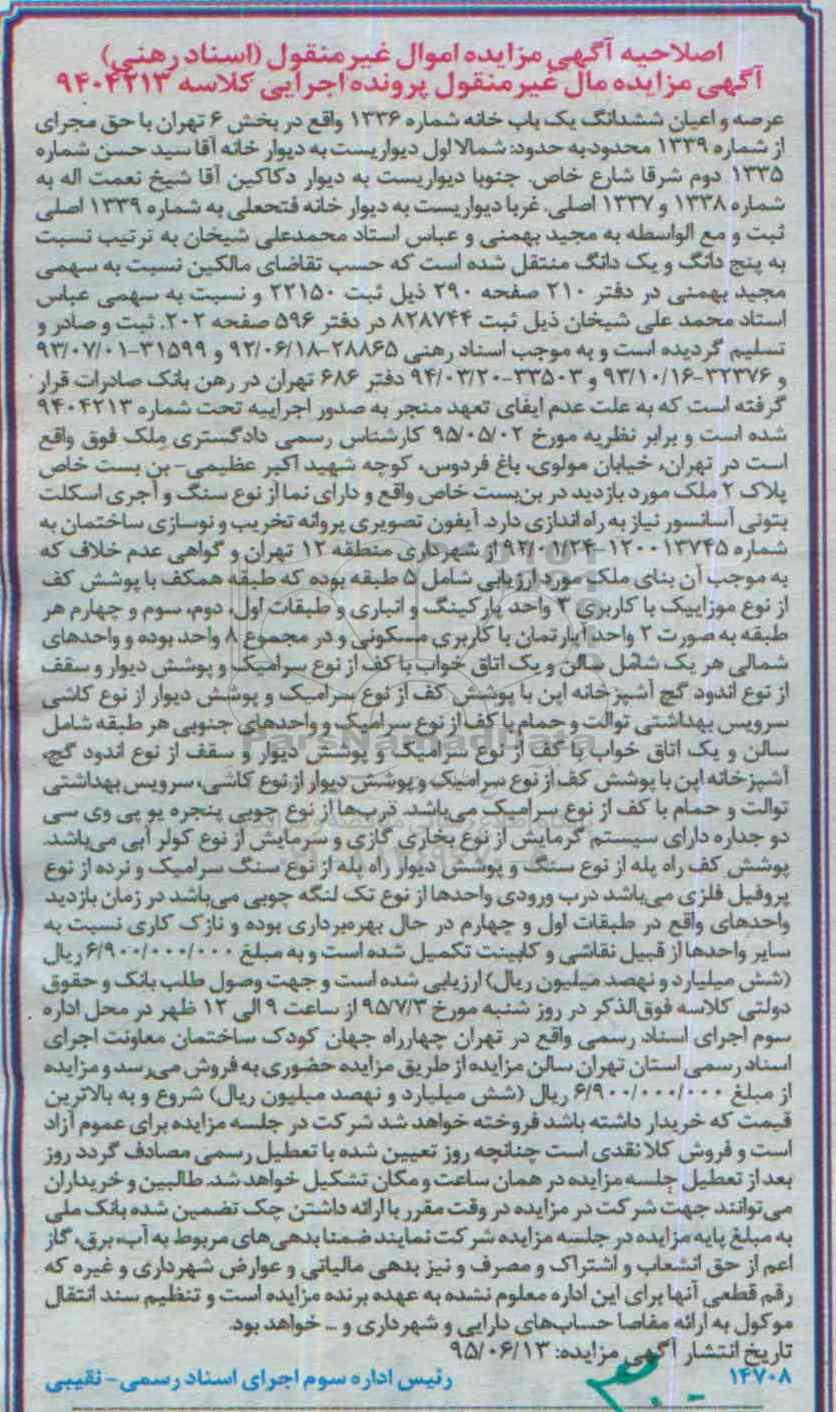 اصلاحیه آگهی مزایده اموال غیر منقول (اسناد رهنی)
آگهی مزایده مال غیر منقول پرونده اجرایی کلاسه ۹۴۰۴۲۱۳
عرصه و اعیان ششدانگ یک باب خانه شماره ۱۳۳۶ واقع در بخش ۶ تهران با حق مجرای
از شماره ۱۳۳۹ محدود به حدود: شمالا اول دیواریست به دیوار خانه آقا سید حسن شماره
۱۳۳۵ دوم شرقا شارع خاص. جنوبا دیواریست به دیوار دکاکین آقا شیخ نعمت اله به
شماره ۱۳۳۸ و ۱۳۳۷ اصلی. غربا دیواریست به دیوار خانه فتحعلی به شماره ۱۳۳۹ اصلی
ثبت و مع الواسطه به مجید بهمنی و عباس استاد محمدعلی شیخان به ترتیب نسبت
به پنج دانگ و یک دانگ منتقل شده است که حسب تقاضای مالکین نسبت به سهمی
مجید بهمنی در دفتر ۲۱۰ صفحه ۲۹۰ ذیل ثبت ۲۲۱۵۰ و نسبت به سهمی عباس
استاد محمد علی شیخان ذیل ثبت ۸۲۸۷۴۴ در دفتر ۵۹۶ صفحه ۲۰۲. ثبت و صادر و
تسلیم گردیده است و به موجب اسناد رهنی ۲۸۸۶۵-۹۲/۰۶/۱۸ و ۳۱۵۹۹-۹۳/۰۷/۰۱
و ۳۲۳۷۶-۹۳/۱۰/۱۶ و ۳۳۵۰۳-۹۴/۰۳/۲۰ دفتر ۶۸۶ تهران در رهن بانک صادرات قرار
گرفته است که به علت عدم ایفای تعهد منجر به صدور اجراییه تحت شماره ۹۴۰۴۲۱۳
شده است و برابر نظریه مورخ ۹۵/۰۵/۰۲ کارشناس رسمی دادگستری ملک فوق واقع
است در تهران، خیابان مولوی، باغ فردوس، کوچه شهید اکبر عظیمی- بن بست خاص
پلاک ۲ ملک مورد بازدید در بن‌بست خاص واقع و دارای نما از نوع سنگ و آجری اسکلت
بتونی آسانسور نیاز به راه اندازی دارد. آیفون تصویری پروانه تخریب و نوسازی ساختمان به
شماره ۱۲۰۰۱۳۷۴۵-۹۲/۰۱/۲۴ از شهرداری منطقه ۱۲ تهران و گواهی عدم خلاف که
به موجب آن بنای ملک مورد ارزیابی شامل ۵ طبقه بوده که طبقه همکف با پوشش کف
از نوع موزاییک با کاربری ۳ واحد پارکینگ و انباری و طبقات اول، دوم، سوم و چهارم هر
طبقه به صورت ۲ واحد آپارتمان با کاربری مسکونی و در مجموع ۸ واحد بوده و واحدهای
شمالی هر یک شامل سالن و یک اتاق خواب با کف از نوع سرامیک و پوشش دیوار و سقف
از نوع اندود گچ آشپزخانه اپن با پوشش کف از نوع سرامیک و پوشش دیوار از نوع کاشی
سرویس بهداشتی توالت و حمام با کف از نوع سرامیک و واحدهای جنوبی هر طبقه شامل
سالن و یک اتاق خواب با کف از نوع سرامیک و پوشش دیوار و سقف از نوع اندود گچ،
آشپزخانه اپن با پوشش کف از نوع سرامیک و پوشش دیوار از نوع کاشی، سرویس بهداشتی
توالت و حمام با کف از نوع سرامیک می‌باشد. درب‌ها از نوع چوبی پنجره یو پی وی سی
دو جداره دارای سیستم گرمایش از نوع بخاری گازی و سرمایش از نوع کولر آبی می‌باشد.
پوشش کف راه پله از نوع سنگ و پوشش دیوار راه پله از نوع سنگ سرامیک و نرده از نوع
پروفیل فلزی می‌باشد درب ورودی واحدها از نوع تک لنگه چوبی می‌باشد در زمان بازدید
واحدهای واقع در طبقات اول و چهارم در حال بهره‌برداری بوده و نازک کاری نسبت به
سایر واحدها از قبیل نقاشی و کابینت تکمیل شده است و به مبلغ ۶/۹۰۰/۰۰۰/۰۰۰ ریال
(شش میلیارد و نهصد میلیون ریال) ارزیابی شده است و جهت وصول طلب بانک و حقوق
دولتی کلاسه فوق‌الذکر در روز شنبه مورخ ۹۵/۷/۳ از ساعت ۹ الی ۱۲ ظهر در محل اداره
سوم اجرای اسناد رسمی واقع در تهران چهارراه جهان کودک ساختمان معاونت اجرای
اسناد رسمی استان تهران سالن مزایده از طریق مزایده حضوری به فروش می‌رسد و مزایده
از مبلغ ۶/۹۰۰/۰۰۰/۰۰۰ ریال (شش میلیارد و نهصد میلیون ریال) شروع و به بالاترین
قیمت که خریدار داشته باشد فروخته خواهد شد شرکت در جلسه مزایده برای عموم آزاد
است و فروش کلا نقدی است چنانچه روز تعیین شده با تعطیل رسمی مصادف گردد روز
بعد از تعطیل جلسه مزایده در همان ساعت و مکان تشکیل خواهد شد. طالبین و خریداران
می‌توانند جهت شرکت در مزایده در وقت مقرر با ارائه داشتن چک تضمین شده بانک ملی
به مبلغ پایه مزایده در جلسه مزایده شرکت نمایند ضمنا بدهی‌های مربوط به آب، برق، گاز
اعم از حق انشعاب و اشتراک و مصرف و نیز بدهی مالیاتی و عوارض شهرداری و غیره که
رقم قطعی آنها برای این اداره معلوم نشده به عهده برنده مزایده است و تنظیم سند انتقال
موکول به ارائه مفاصا حساب‌های دارایی و شهرداری و ... خواهد بود.
تاریخ انتشار آگهی مزایده: ۹۵/۰۶/۱۳
۱۴۷۰۸ رئیس اداره سوم اجرای اسناد رسمی- نقیبی
ParsNamadData